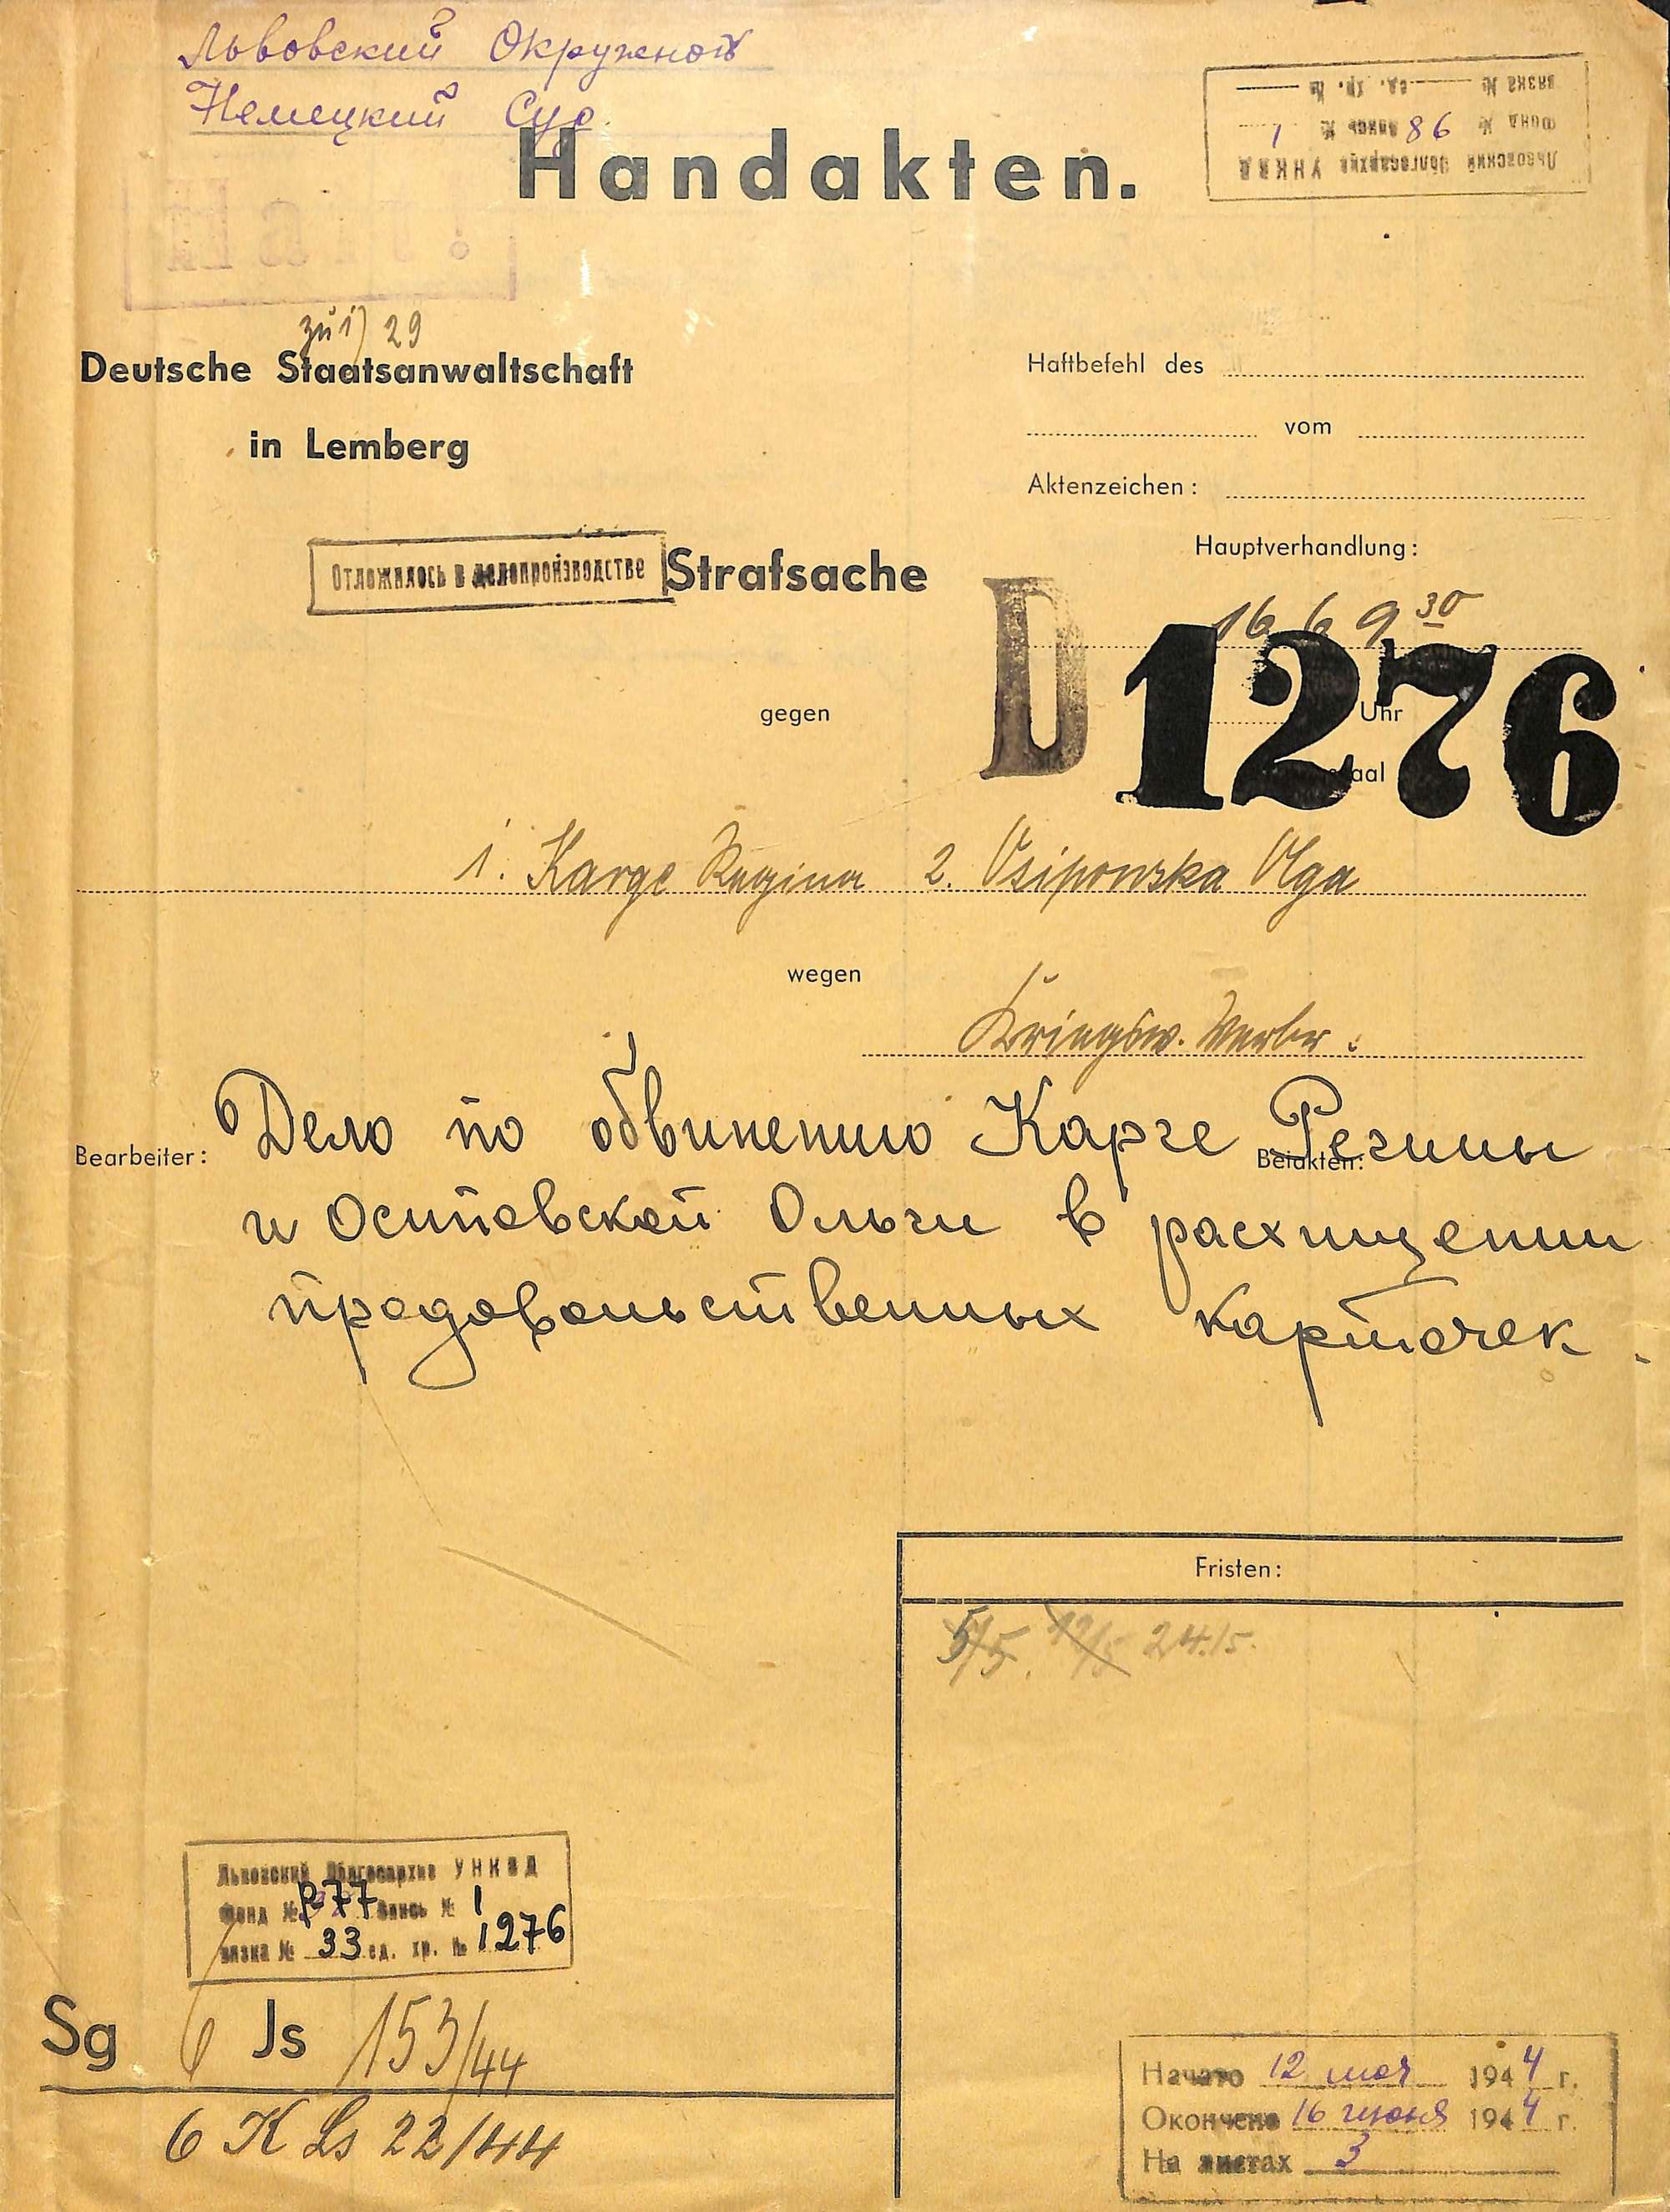 Львовский Окружной
Немецкий Суд.
Handakten.
Львовский Облгосархив УНКВД
Фонд № 86 опись № 1
вязка № ед. хр. №
zu 1) 29
Deutsche Staatsanwaltschaft
in Lemberg
Haftbefehl des
vom
Aktenzeichen:
Отложилось в делопроизводстве
Strafsache
Hauptverhandlung:
16 6 9 30
D 1276
gegen
Uhr
1. Karge Regina 2. Osipowska Olga
wegen
Kriegsw. Verbr.
Bearbeiter:
Beiakten:
Дело по обвинению Карге Регины
и Осиповской Ольги в расхищении
продовольственных карточек.
Fristen:
5/5. 12/5 24./5.
Львовский Облгосархив УНКВД
Фонд № Р77 опись № 1
вязка № 33 ед. хр. № 1276
Sg 6 Js 153/44
6 K Ls 22/44
Начато 12 мая 1944 г.
Окончено 16 июня 1944 г.
На листах 3